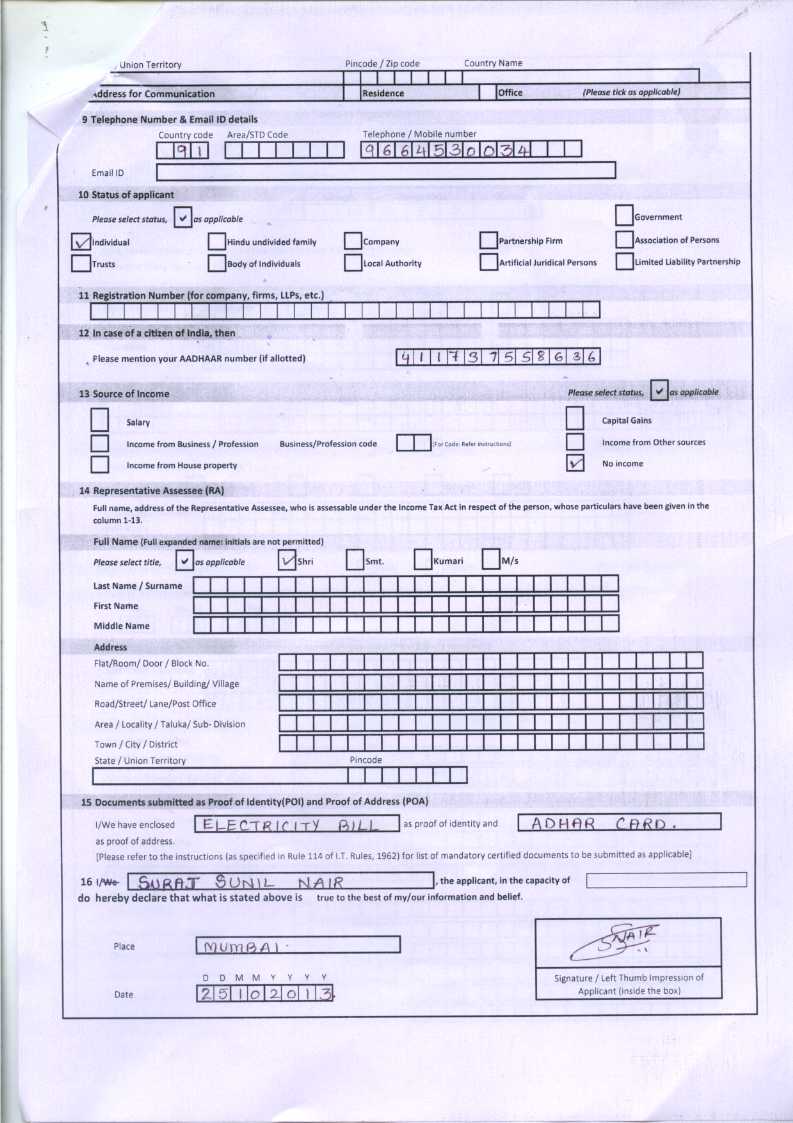 Union Territory Pincode / Zip code Country Name
Address for Communication Residence Office (Please tick as applicable)
9 Telephone Number & Email ID details
Country code Area/STD Code Telephone / Mobile number
91 9664530034
Email ID
10 Status of applicant
Please select status, ✓ as applicable Government
✓ Individual Hindu undivided family Company Partnership Firm Association of Persons
Trusts Body of Individuals Local Authority Artificial Juridical Persons Limited Liability Partnership
11 Registration Number (for company, firms, LLPs, etc.)
12 In case of a citizen of India, then
Please mention your AADHAAR number (if allotted) 411737558636
13 Source of Income Please select status, ✓ as applicable
Salary Capital Gains
Income from Business / Profession Business/Profession code [For Code: Refer instructions] Income from Other sources
Income from House property ✓ No income
14 Representative Assessee (RA)
Full name, address of the Representative Assessee, who is assessable under the Income Tax Act in respect of the person, whose particulars have been given in the
column 1-13.
Full Name (Full expanded name: initials are not permitted)
Please select title, ✓ as applicable ✓ Shri Smt. Kumari M/s
Last Name / Surname
First Name
Middle Name
Address
Flat/Room/ Door / Block No.
Name of Premises/ Building/ Village
Road/Street/ Lane/Post Office
Area / Locality / Taluka/ Sub- Division
Town / City / District
State / Union Territory Pincode
15 Documents submitted as Proof of Identity(POI) and Proof of Address (POA)
I/We have enclosed ELECTRICITY BILL as proof of identity and ADHAR CARD.
as proof of address.
[Please refer to the instructions (as specified in Rule 114 of I.T. Rules, 1962) for list of mandatory certified documents to be submitted as applicable]
16 I/We SURAJ SUNIL NAIR , the applicant, in the capacity of
do hereby declare that what is stated above is true to the best of my/our information and belief.
Place MUMBAI. SNAIR
D D M M Y Y Y Y Signature / Left Thumb Impression of
Date 25102013 Applicant (inside the box)